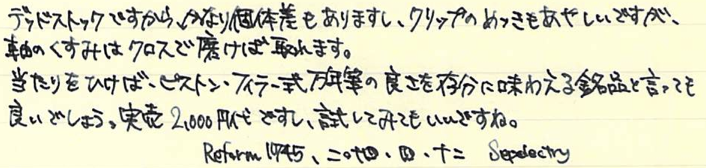 デッドストックですから、かなり個体差もありますし、クリップのめっきもあやしいですが、
軸のくすみはクロスで磨けば取れます。
当たりをひけば、ピストン・フィラー式万年筆の良さを存分に味わえる銘品と言っても
良いでしょう。実売2,000円代ですし、試してみてもいいですね。
Reform 1745、二〇十四・四・十二